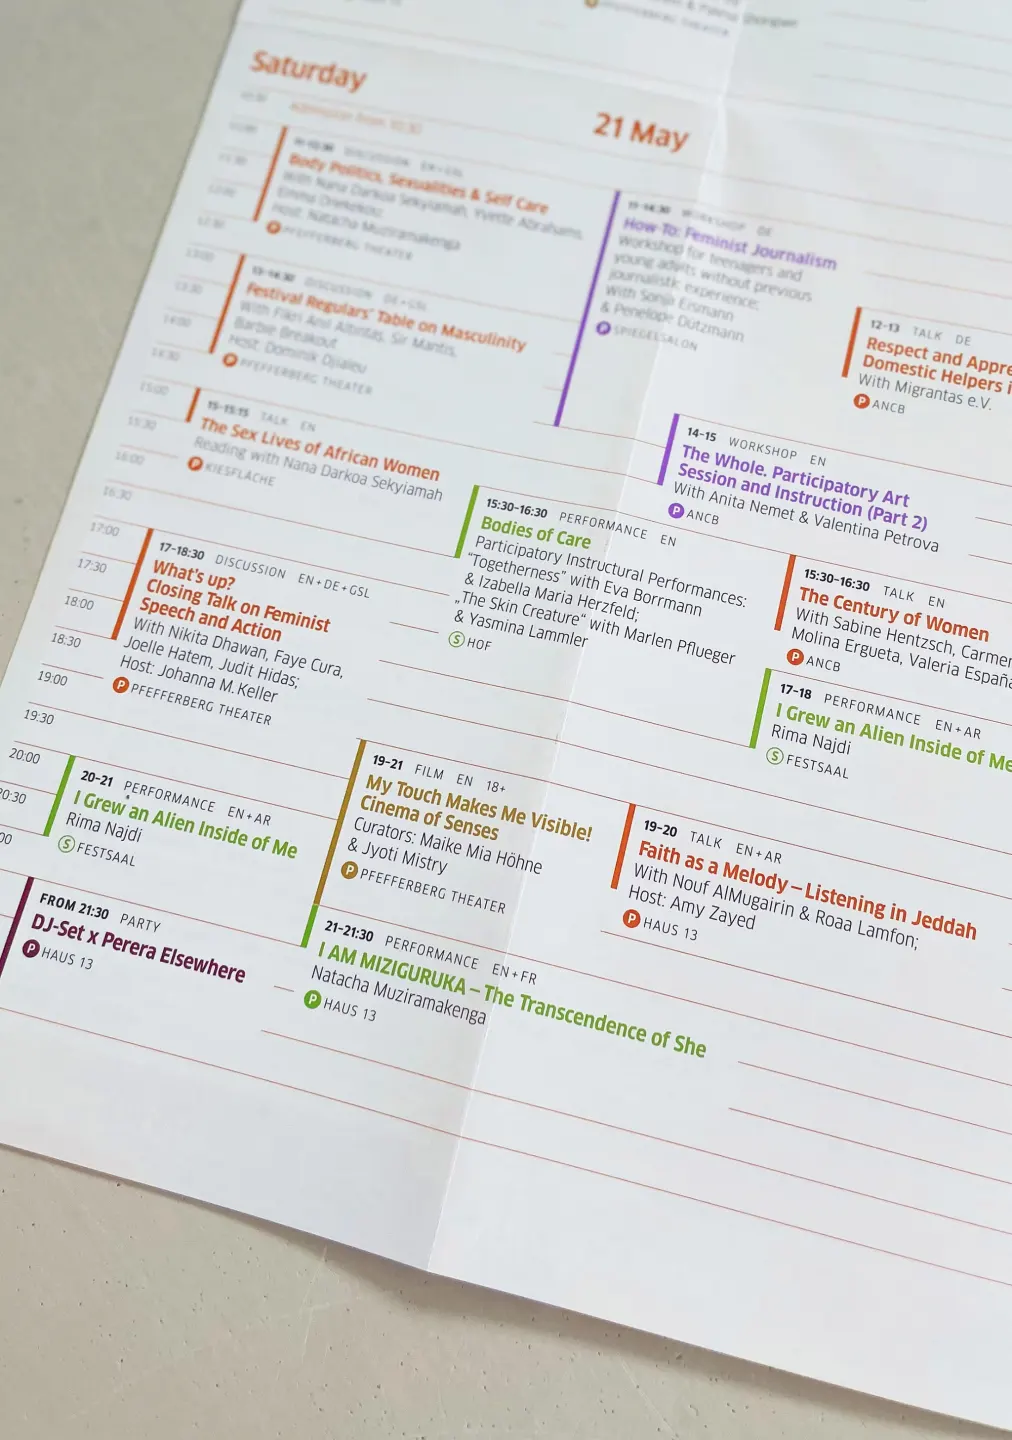 Saturday
21 May
Admission from 10:30
11-12:30 DISCUSSION EN+GSL
Body Politics, Sexualities & Self Care
With Nana Darkoa Sekyiamah, Yvette Abrahams,
Emma
Host: Natacha Muziramakenga
P PFEFFERBERG THEATER
13-14:30 DISCUSSION DE+GSL
Festival Regulars' Table on Masculinity
With Fikri Anıl Altıntaş, Sir Mantis,
Barbie Breakout
Host: Dominik Djialeu
P PFEFFERBERG THEATER
15-15:15 TALK EN
The Sex Lives of African Women
Reading with Nana Darkoa Sekyiamah
P KIESFLÄCHE
17-18:30 DISCUSSION EN+DE+GSL
What's up?
Closing Talk on Feminist
Speech and Action
With Nikita Dhawan, Faye Cura,
Joelle Hatem, Judit Hidas;
Host: Johanna M. Keller
P PFEFFERBERG THEATER
20-21 PERFORMANCE EN+AR
I Grew an Alien Inside of Me
Rima Najdi
S FESTSAAL
FROM 21:30 PARTY
DJ-Set x Perera Elsewhere
P HAUS 13
11-14:30 WORKSHOP DE
How-To: Feminist Journalism
Workshop for teenagers and
young adults without previous
journalistic experience;
With Sonja Eismann
& Penelope Dützmann
P SPIEGELSALON
15:30-16:30 PERFORMANCE EN
Bodies of Care
Participatory Instructural Performances:
"Togetherness" with Eva Borrmann
& Izabella Maria Herzfeld;
„The Skin Creature" with Marlen Pflueger
& Yasmina Lammler
S HOF
19-21 FILM EN 18+
My Touch Makes Me Visible!
Cinema of Senses
Curators: Maike Mia Höhne
& Jyoti Mistry
P PFEFFERBERG THEATER
21-21:30 PERFORMANCE EN+FR
I AM MIZIGURUKA – The Transcendence of She
Natacha Muziramakenga
P HAUS 13
12-13 TALK DE
Respect and Appre
Domestic Helpers i
With Migrantas e.V.
P ANCB
14-15 WORKSHOP EN
The Whole. Participatory Art
Session and Instruction (Part 2)
With Anita Nemet & Valentina Petrova
P ANCB
15:30-16:30 TALK EN
The Century of Women
With Sabine Hentzsch, Carmen
Molina Ergueta, Valeria España
P ANCB
17-18 PERFORMANCE EN+AR
I Grew an Alien Inside of Me
Rima Najdi
S FESTSAAL
19-20 TALK EN+AR
Faith as a Melody – Listening in Jeddah
With Nouf AlMugairin & Roaa Lamfon;
Host: Amy Zayed
P HAUS 13
10:30
11:00
11:30
12:00
12:30
13:00
13:30
14:00
14:30
15:00
15:30
16:00
16:30
17:00
17:30
18:00
18:30
19:00
19:30
20:00
20:30
00